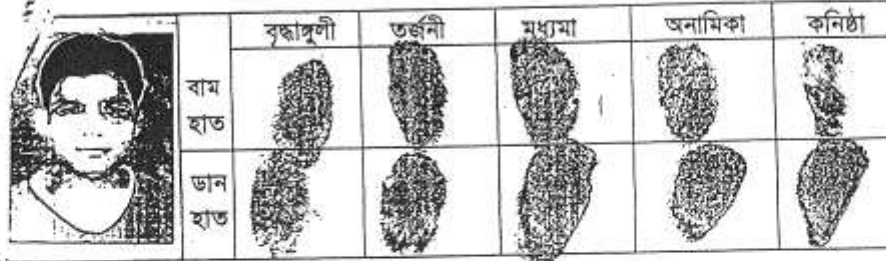 বৃদ্ধাঙ্গুলী তর্জনী মধ্যমা অনামিকা কনিষ্ঠা
বাম
হাত
ডান
হাত